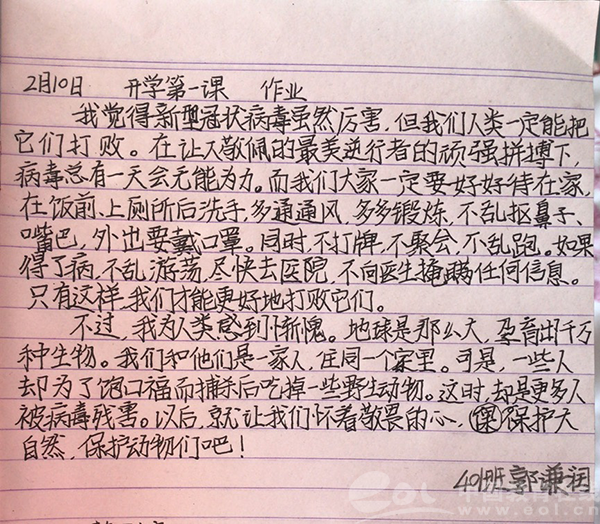 2月10日 开学第一课 作业
我觉得新型冠状病毒虽然厉害,但我们人类一定能把
它们打败。在让人敬佩的最美逆行者的顽强拼搏下,
病毒总有一天会无能为力。而我们大家一定要好好待在家,
在饭前、上厕所后洗手,多通通风,多多锻炼,不乱抠鼻子、
嘴巴,外出要戴口罩。同时,不打牌,不聚会,不乱跑。如果
得了病,不乱游荡,尽快去医院,不向医生掩瞒任何信息。
只有这样,我们才能更好地打败它们。
不过,我为人类感到惭愧。地球是那么大,孕育出千万
种生物。我们和他们是一家人,住同一个家里。可是,一些人
却为了饱口福而捕杀后吃掉一些野生动物。这时,却是更多人
被病毒残害。以后,就让我们怀着敬畏的心,保护大
自然,保护动物们吧!
401班 郭谦润
eol 中国教育在线
www.eol.cn